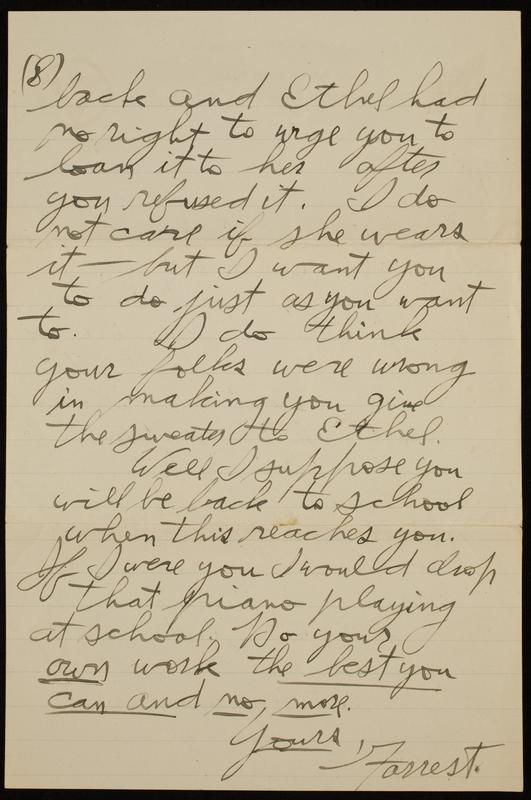 (8)
back and Ethel had
no right to urge you to
loan it to her after
you refused it. I do
not care if she wears
it — but I want you
to do just as you want
to. I do think
your folks were wrong
in making you give
the sweater to Ethel.
Well I suppose you
will be back to school
when this reaches you.
If I were you I would drop
that piano playing
at school. Do your
own work the best you
can and no more.
Yours,
Forrest.